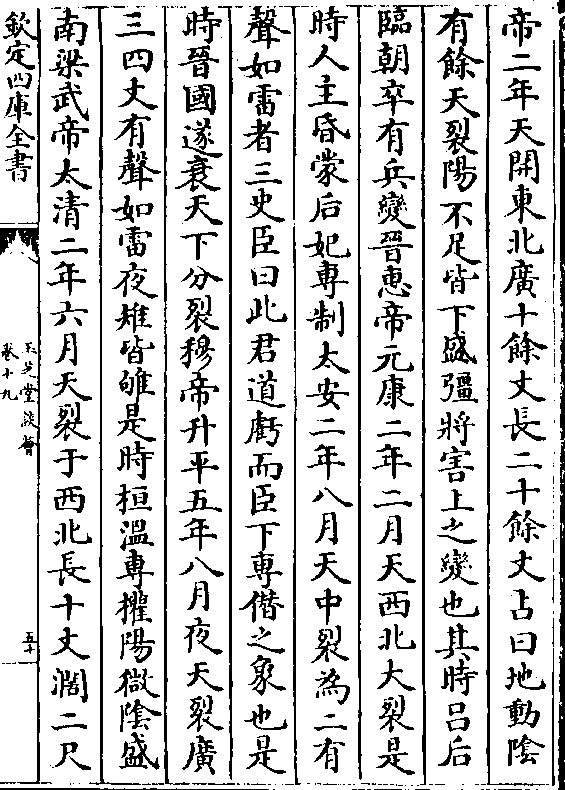 帝二年天開東北廣十餘丈長二十餘丈占曰地動隂
有餘天裂陽不足皆下盛彊將害上之變也其時呂后
臨朝卒有兵變晉惠帝元康二年二月天西北大裂是
時人主昏蒙后妃專制太安二年八月天中裂為二有
聲如雷者三史臣曰此君道虧而臣下專僭之象也是
時晉國遂衰天下分裂穆帝升平五年八月夜天裂廣
三四丈有聲如雷夜雉皆雊是時桓溫專擢陽微陰盛
南梁武帝太清二年六月天裂于西北長十丈濶二尺
欽定四庫全書
玉芝堂談薈
卷十九
五十